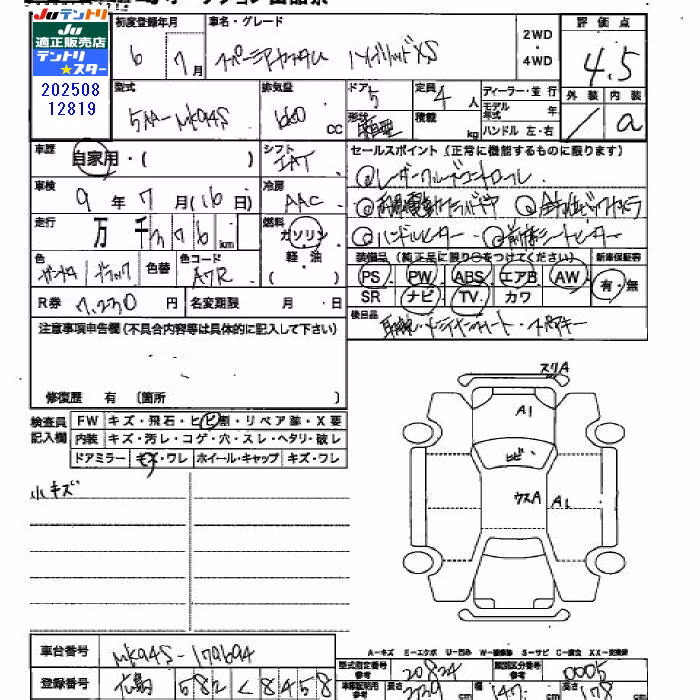 Juテントリ
Ju
適正販売店
テントリ
★スター
202508
12819
初度登録年月
6 7月
車名・グレード
スペーシアカスタム ハイブリッドXS
2WD
・
4WD
評価点
4.5
外装 内装
a
型式
5AA-MK94S
排気量
660 CC
ドア
5
形状
定員
4人
積載
kg
ディーラー・並行
モデル年式 年
ハンドル 左・右
車歴
自家用・( )
シフト
IAT
セールスポイント(正常に機能するものに限ります)
①レーダークルーズコントロール
②両側電動スライドドア ③全方位モニターカメラ
④ハンドルヒーター ⑤前席シートヒーター
車検
9年7月(16日)
冷房
AAC
走行
万 千 km
燃料
ガソリン
軽・油
( )
色
ブラック
色替
色コード
A7R
装備品(純正品に限り○をつけてください)
新車保証書
PS PW ABS エアB AW
SR ナビ TV カワ
有・無
R券
7,230円
名変期限 月 日
後日品
注意事項申告欄(不具合内容等は具体的に記入して下さい)
修復歴 有 〔箇所 〕
検査員
記入欄
FW キズ・飛石・ヒビ割・リペア跡・X要
内装 キズ・汚レ・コゲ・穴・スレ・ヘタリ・破レ
ドアミラー キズ・ワレ ホイール・キャップ キズ・ワレ
小キズ
スリA
A1
ヒビ
ウスA A1
A-キズ E-エクボ U-凹み W-補修跡 S-サビ C-腐食 XX-交換済
車台番号
MK94S-179694
登録番号
広島 582 く 8458
型式指定番号
参考
20824
類別区分番号
参考
0005
車庫証明用
参考
長さ
cm
幅
147
cm
高さ
178
cm